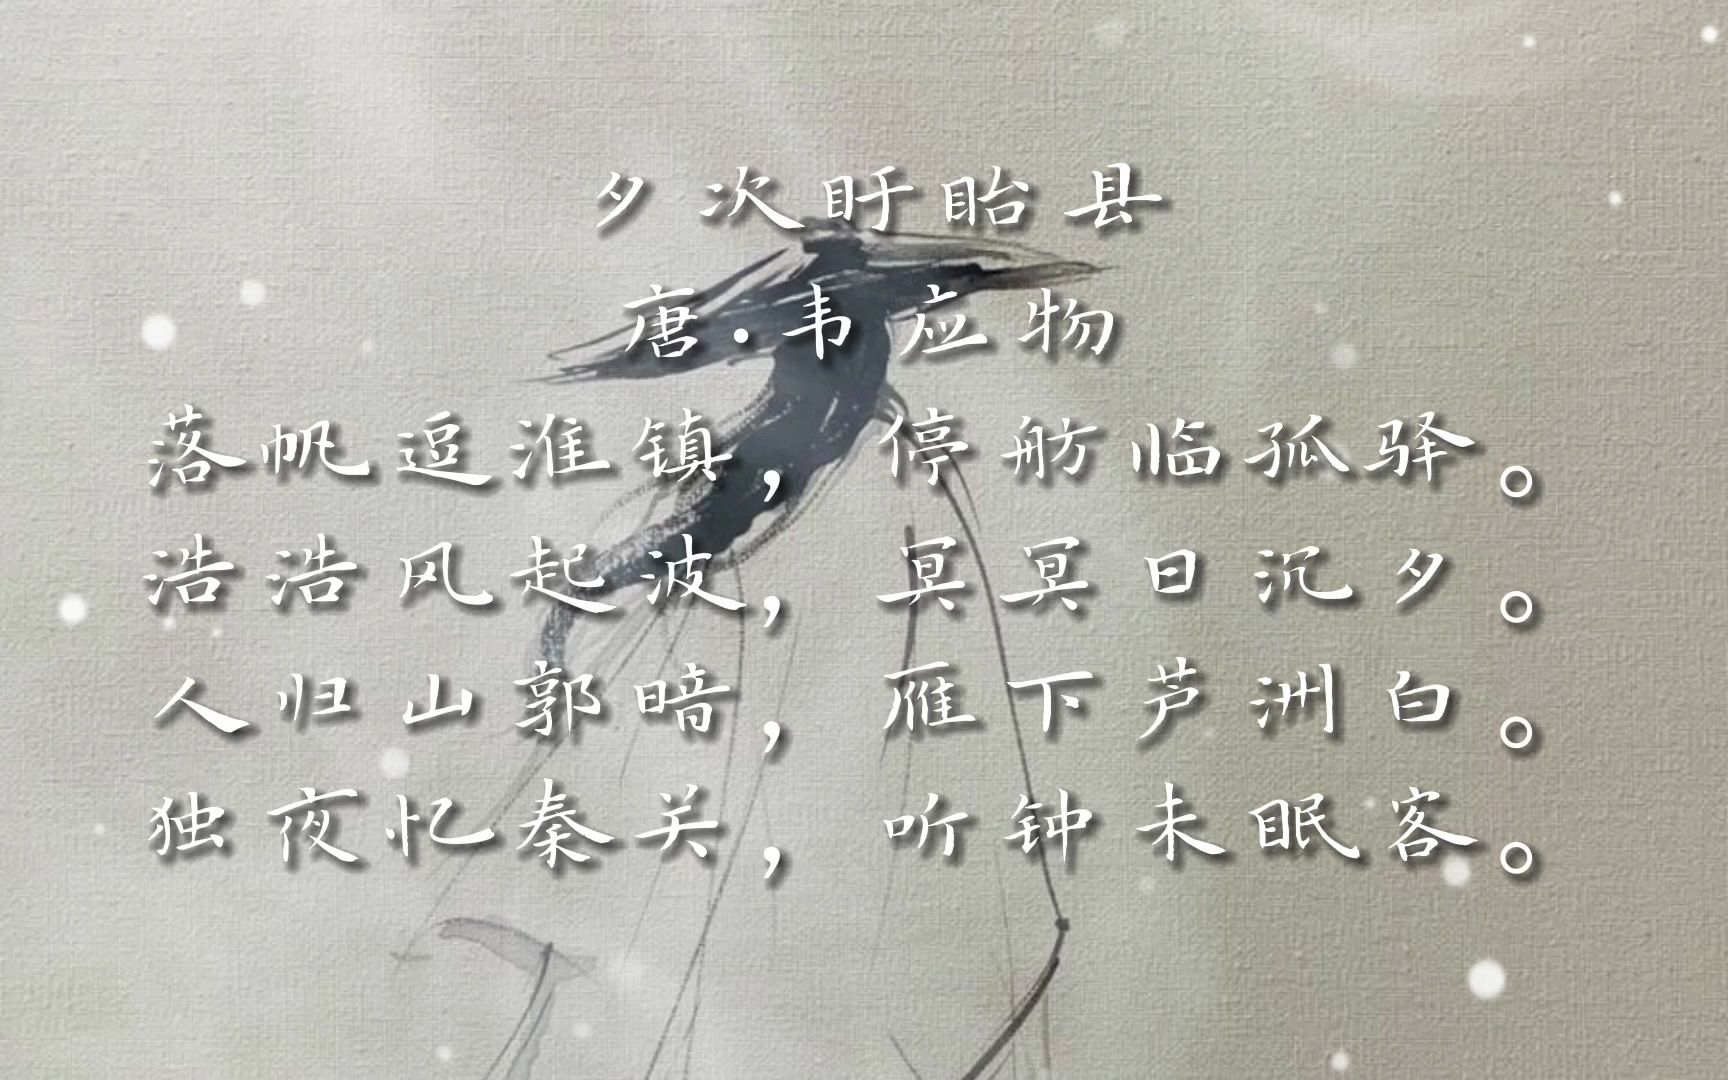 夕次盱眙县
唐·韦应物
落帆逗淮镇，停舫临孤驿。
浩浩风起波，冥冥日沉夕。
人归山郭暗，雁下芦洲白。
独夜忆秦关，听钟未眠客。